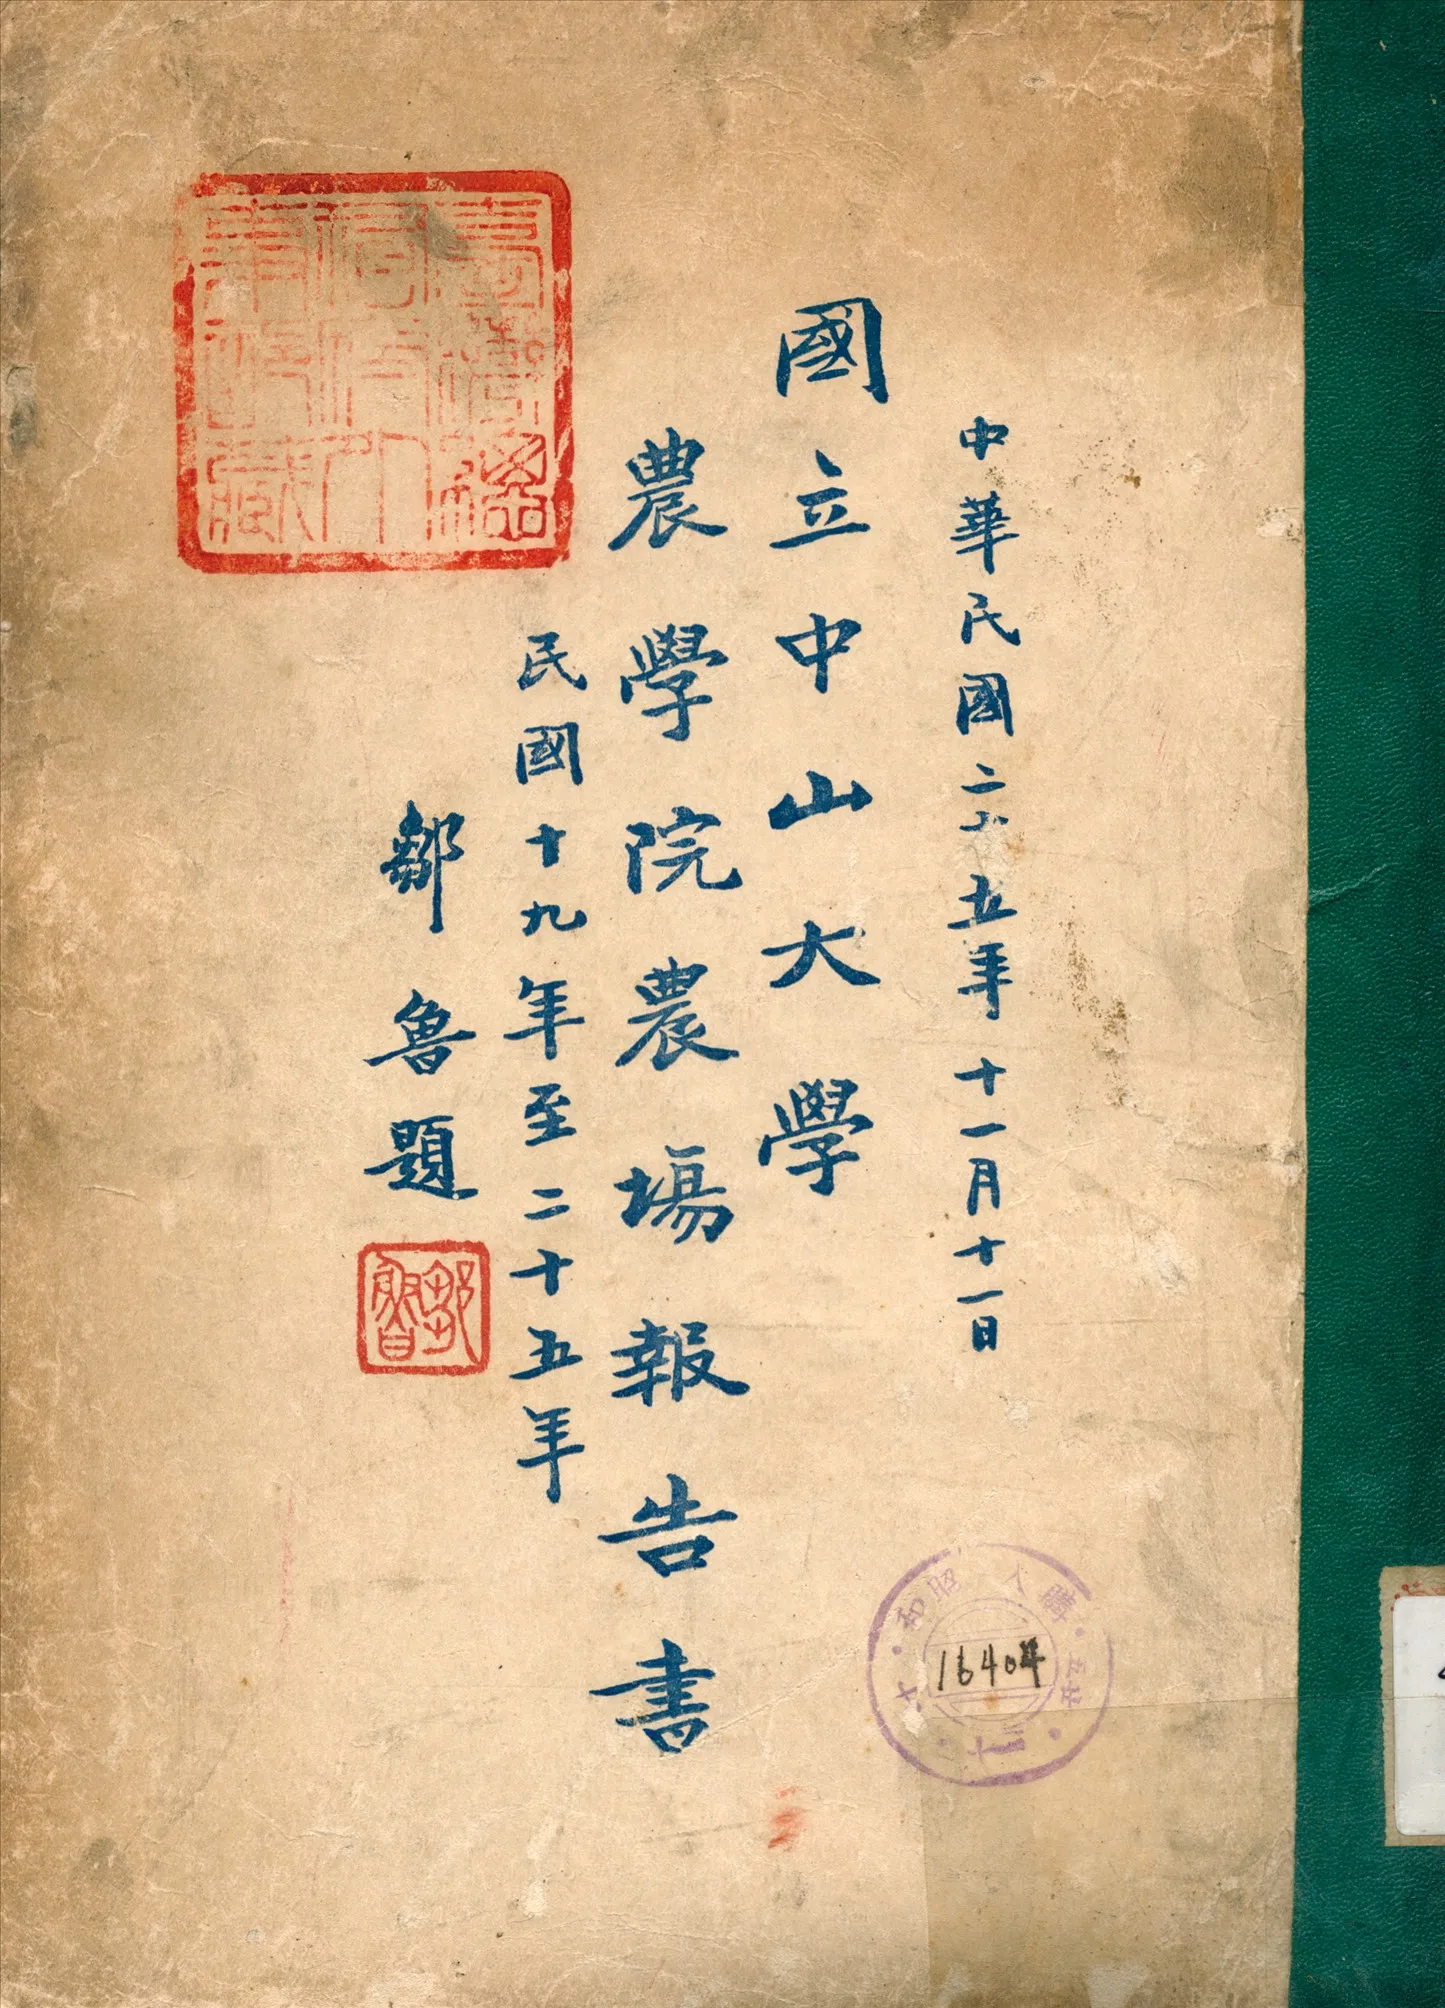 中華民國二十五年十一月十一日
國立中山大學
農學院農場報告書
民國十九年至二十五年
鄒魯題
鄒魯
購入
昭和
16404